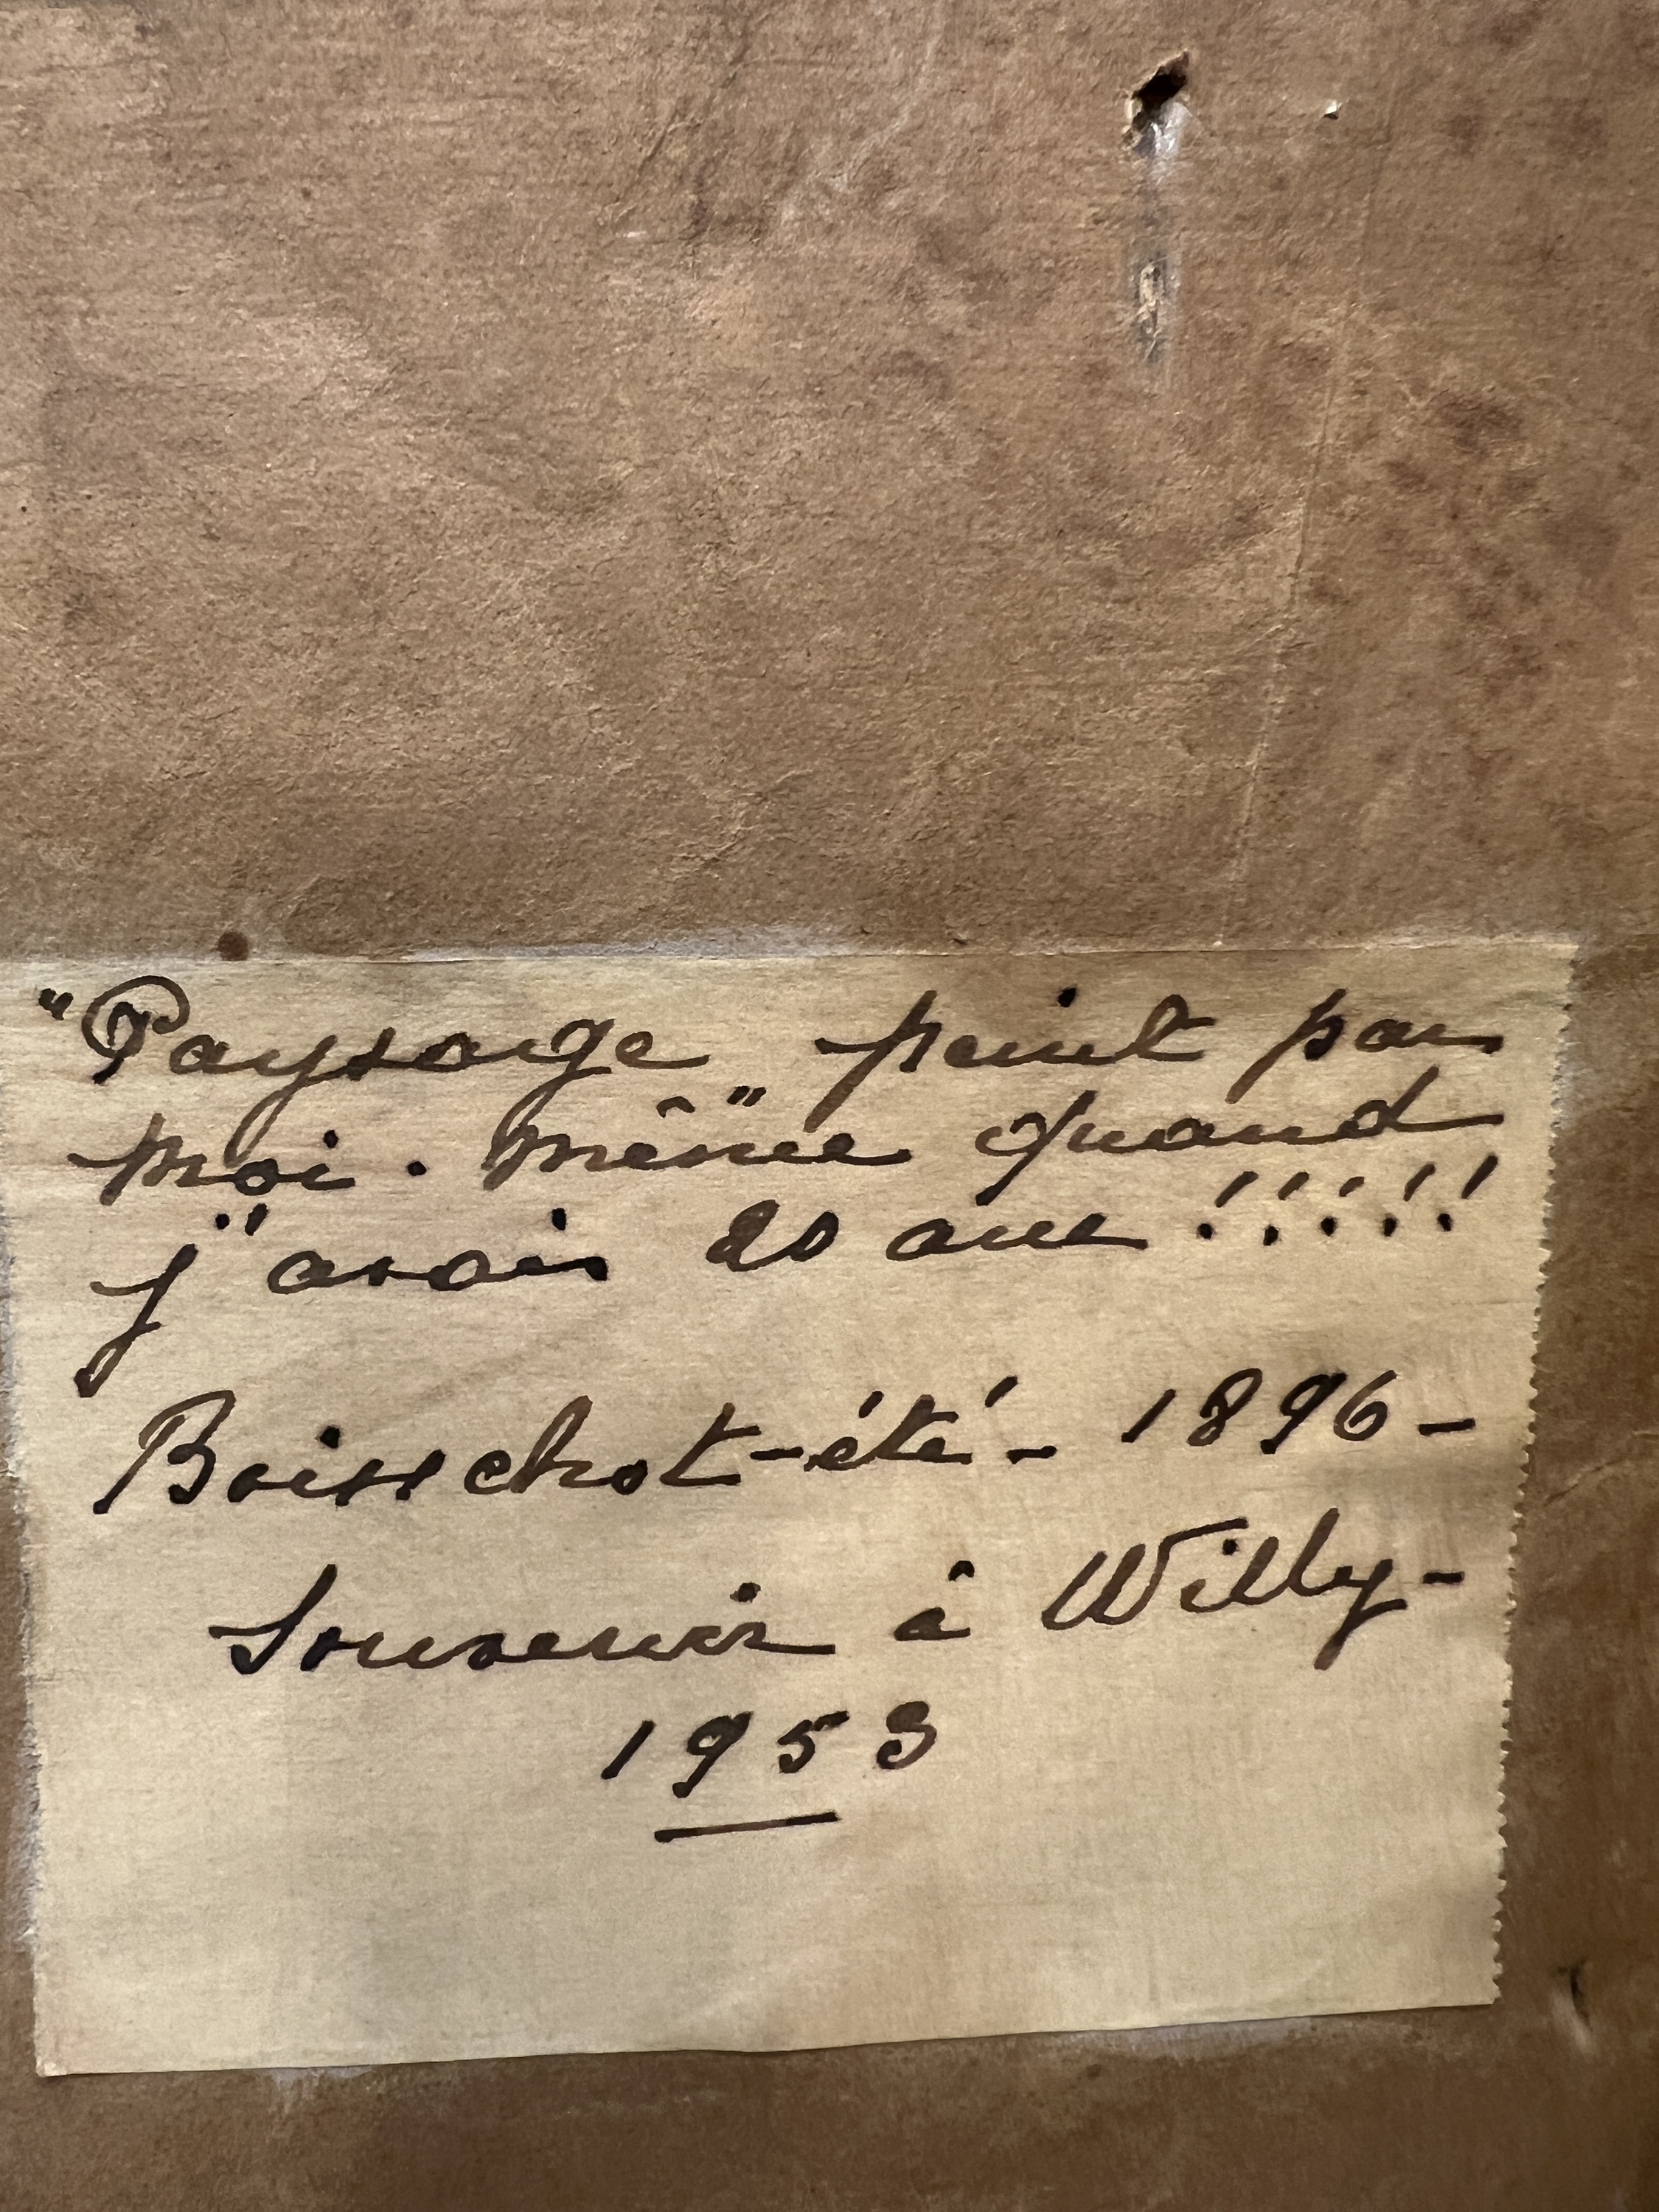 "Paysage peint par
moi-même" quand
j'avais 20 ans !!!!!
Boisschot - été - 1896 -
Souvenir à Willy -
1953